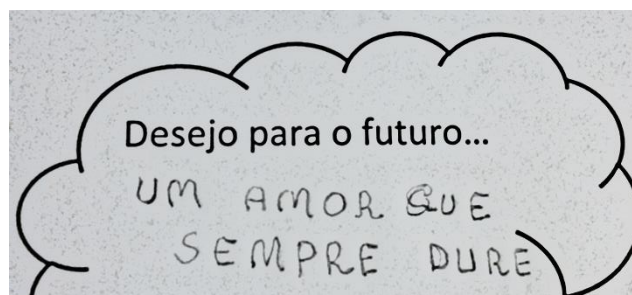 Desejo para o futuro...
UM AMOR QUE
SEMPRE DURE